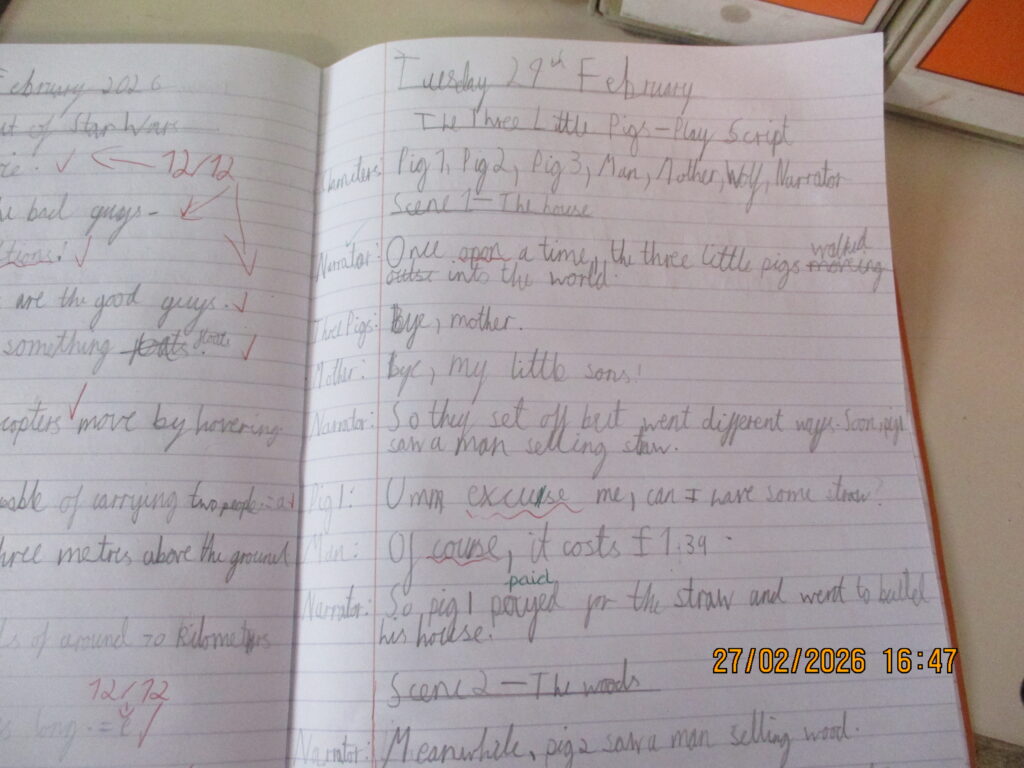 February 2026
ut of Star Wars
12/12
bad guys-
are the good guys.
something floats float
copters move by hovering
able of carrying two people
hree metres above the ground
s of around 70 kilometres
12/12
long.
Tuesday 29th February
The Three Little Pigs-Play Script
Characters: Pig 1, Pig 2, Pig 3, Man, Mother, Wolf, Narrator
Scene 1 - The house
walked
Narrator: Once opon a time, the three little pigs moving
into the world.
Three Pigs: Bye, mother.
Mother: Bye, my little sons!
Narrator: So they set off but went different ways. Soon, pig 1
saw a man selling staw.
Pig 1: Umm excuse me, can I have some straw?
Man: Of couse, it costs £1.39
paid
Narrator: So pig 1 payed for the straw and went to build
his house.
Scene 2 - The woods
Narrator: Meanwhile, pig 2 saw a man selling wood.
27/02/2026 16:47